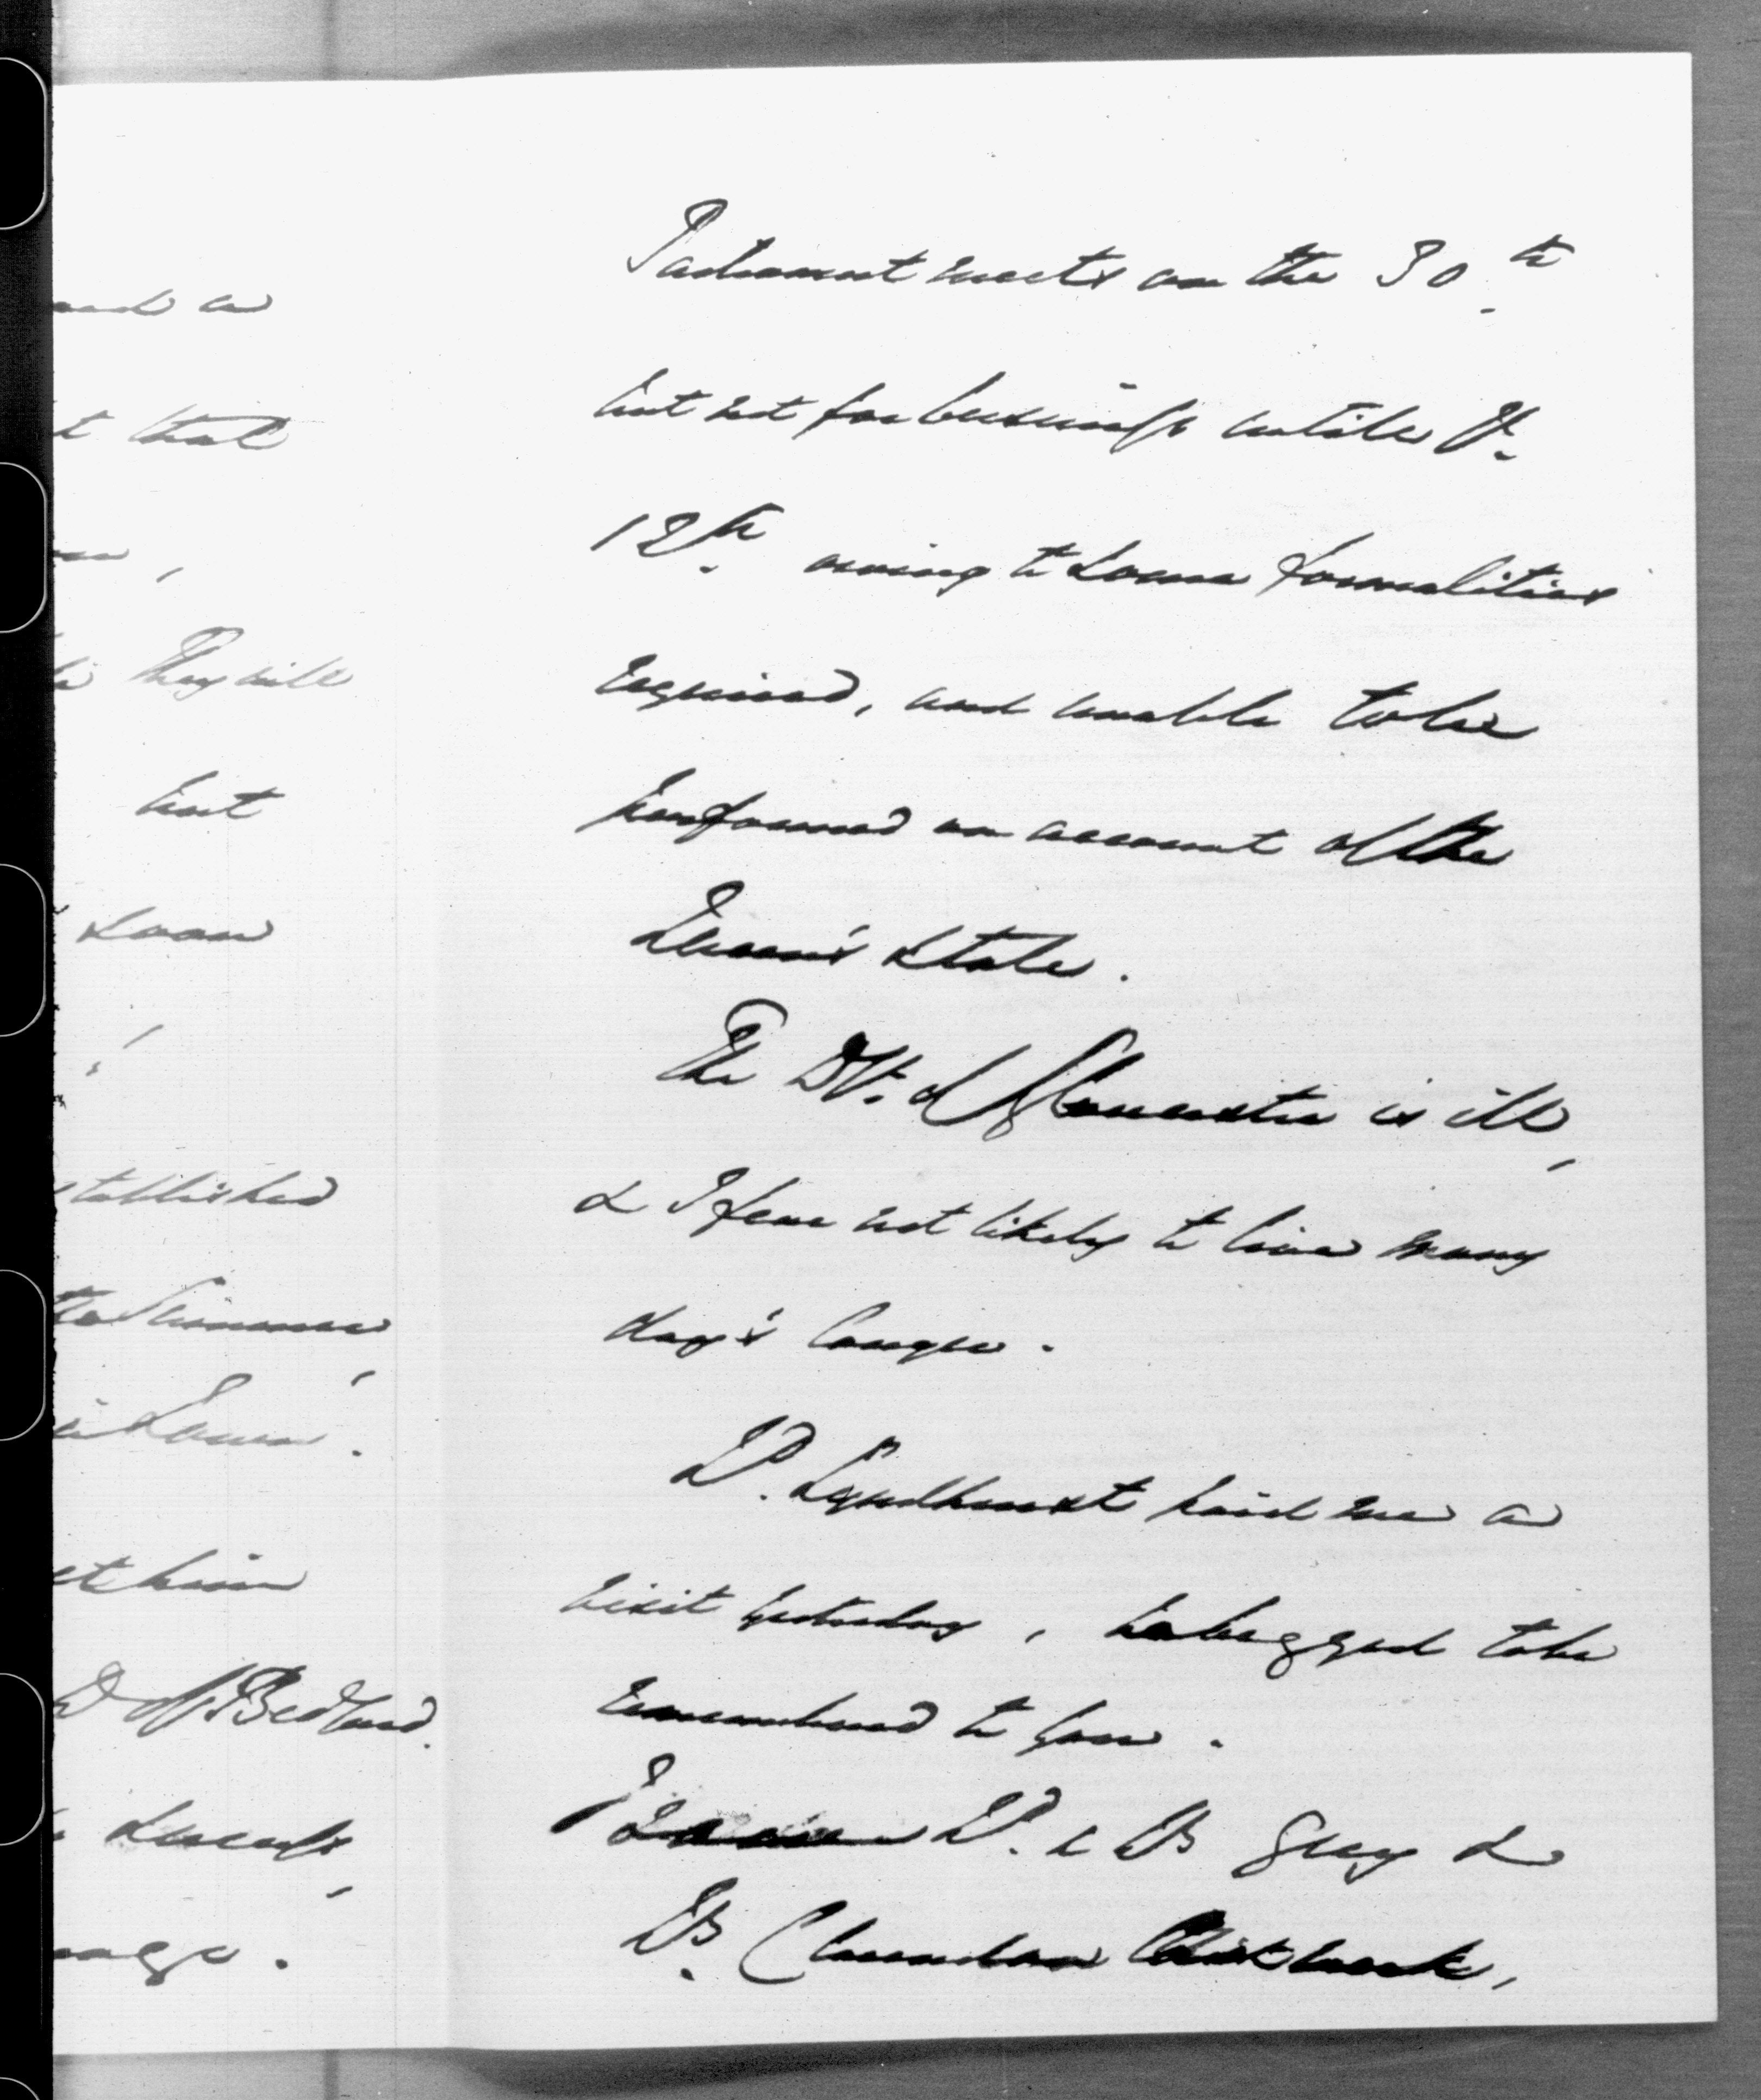 and a
t that
,
they will
but
soon
!
stablished
in Town.
et him
D of Bedford.
.
Parliament meets on the 30th
but not for business untill Fy.
12th owing to some formalities
required, and unable to be
performed on account of the
Queen's State.
The Dss. of Gloucester is ill,
& I fear not likely to live many
day's longer.
Ld. Lyndhurst paid me a
visit yesterday, he begged to be
remembered to you.
I saw Ld. & Ly Grey &
Ly. Clarendon last week,